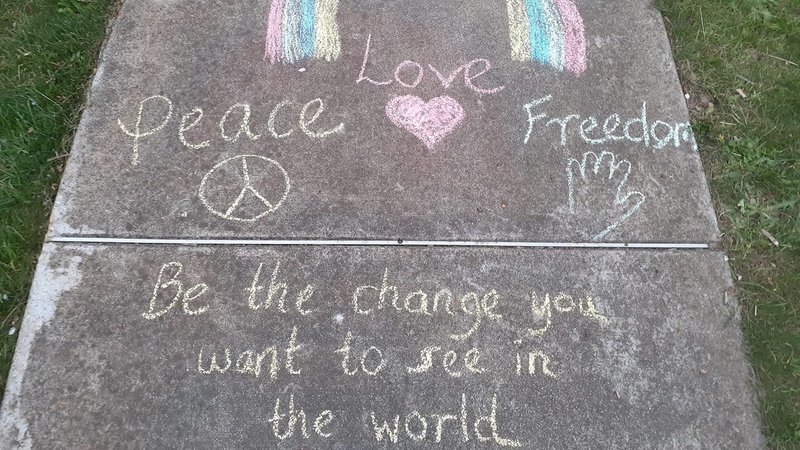 Love
Peace
Freedom
Be the change you
want to see in
the world